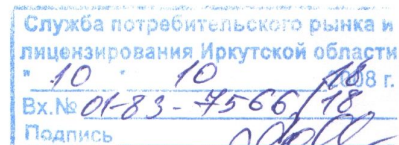 Служба потребительского рынка и
лицензирования Иркутской области
"10" 10 2008 г.
Вх.№ 01-83-7566/18
Подпись